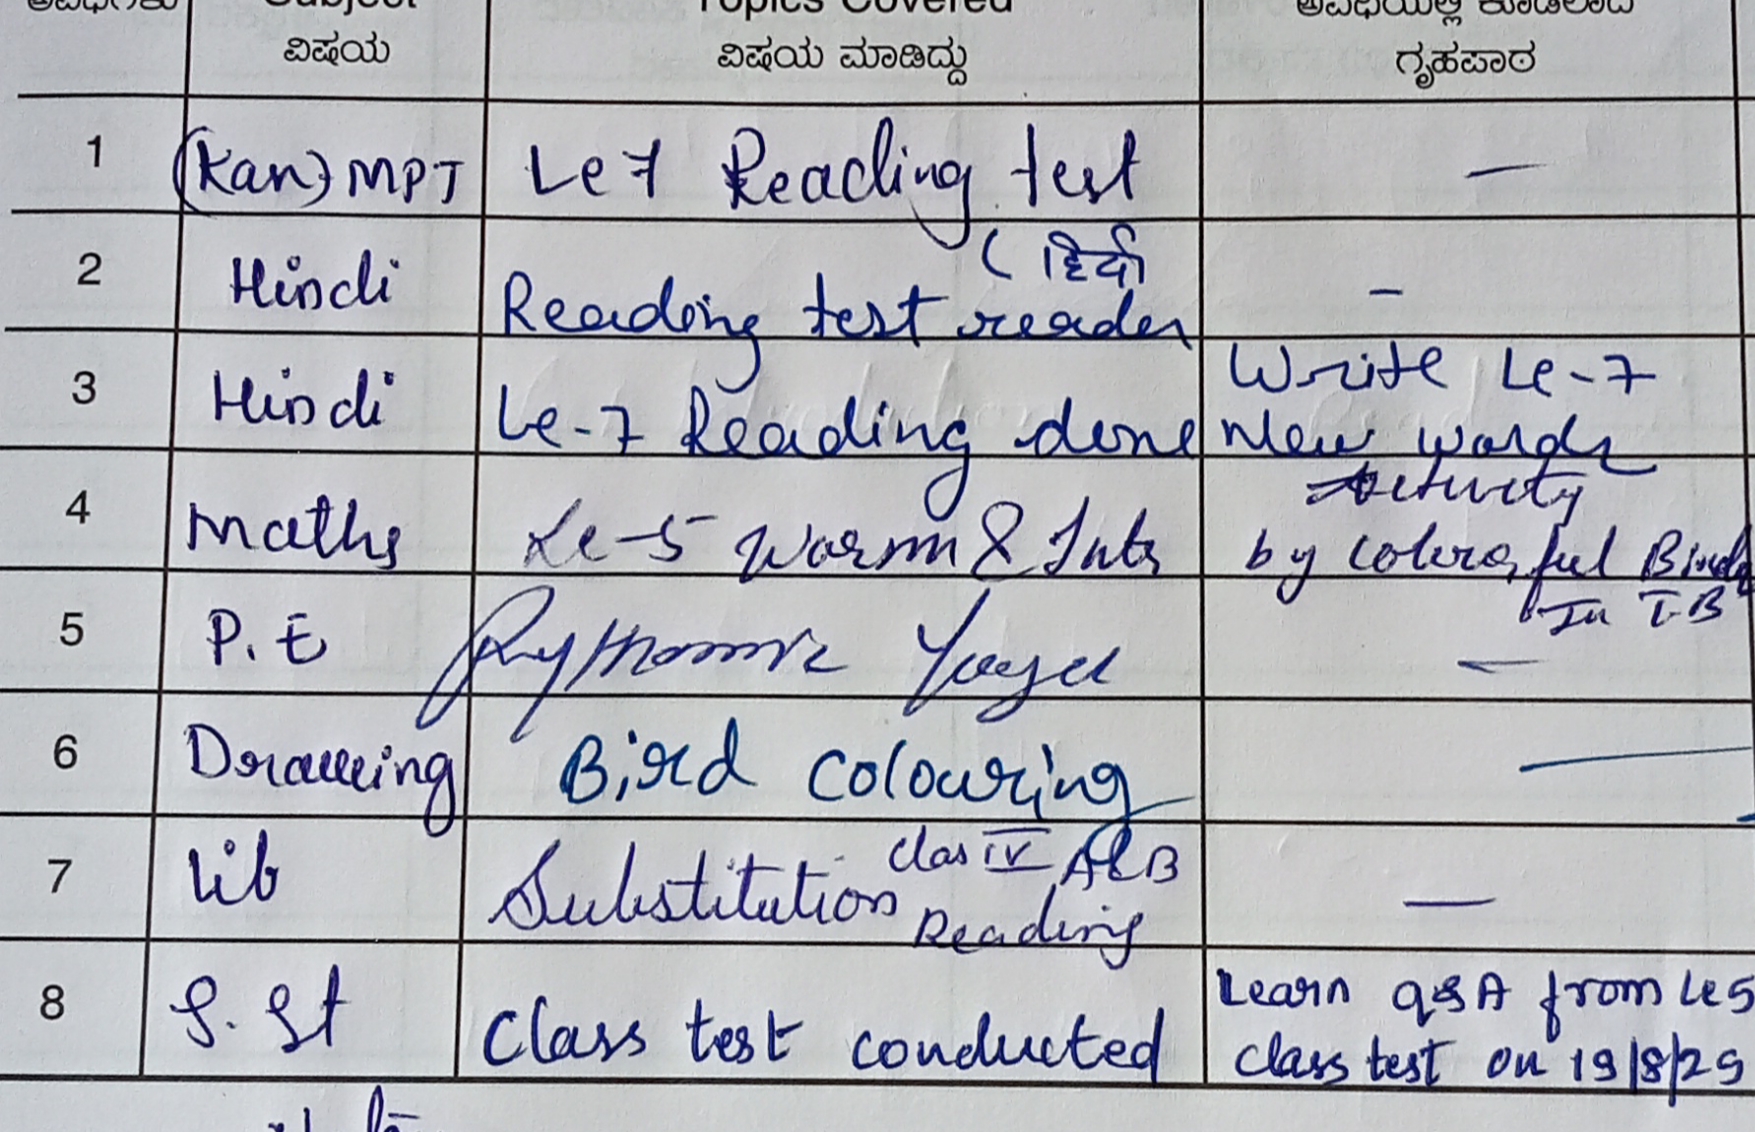 Subject Topics Covered
ವಿಷಯ ವಿಷಯ ಮಾಡಿದ್ದು ಗೃಹಪಾಠ
1 (Kan) MPT Le 7 Reading test —
2 Hindi Reading test reader (हिंदी –
3 Hindi Le-7 Reading done Write Le-7
New words
4 Maths Le-5 Activity
by colourful Birds
In T.B
5 P.E —
6 Drawing Bird Colouring —
7 Lib Substitution Clas IV A&B
Reading —
8 S. St Class test conducted Learn Q&A from Le 5
class test on 19/8/25